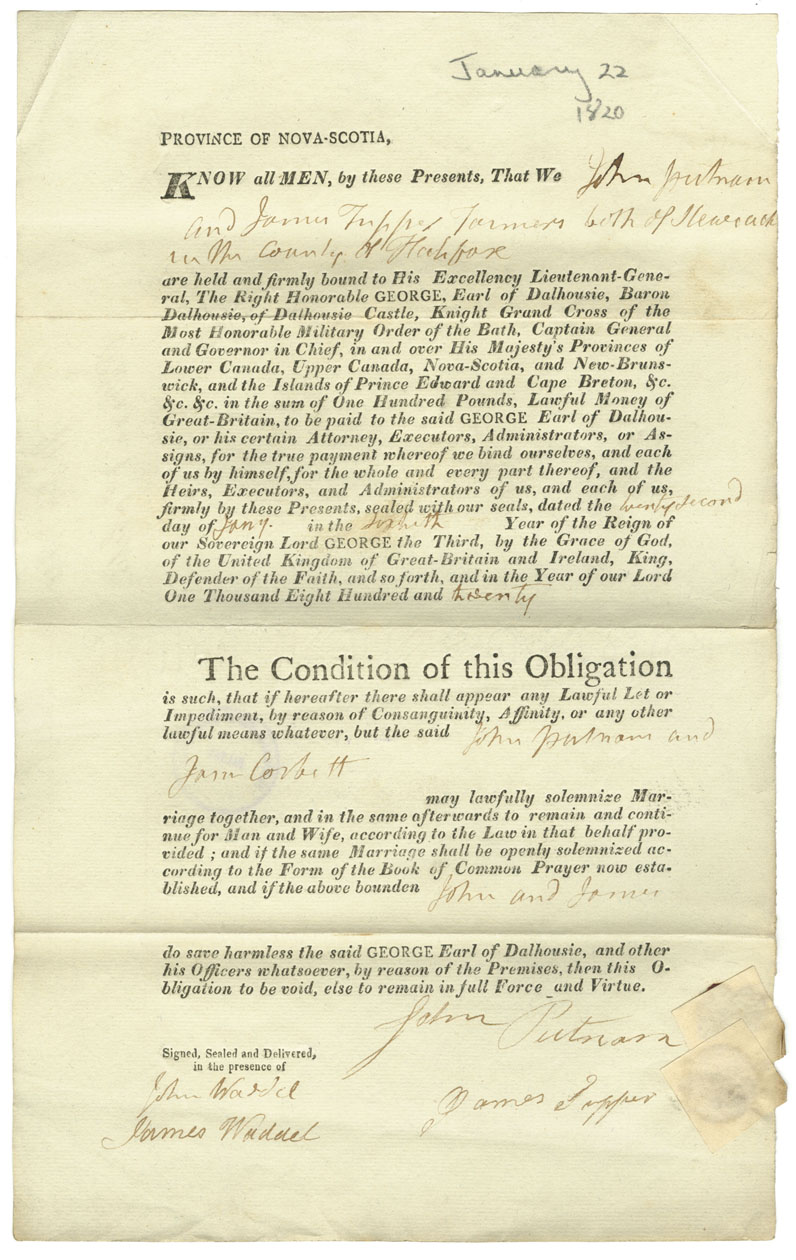 January 22
1820
PROVINCE OF NOVA-SCOTIA,
KNOW all MEN, by these Presents, That We John Putnam
and James Tupper farmers both of
in the County of Halifax
are held and firmly bound to His Excellency Lieutenant-Gene-
ral, The Right Honorable GEORGE, Earl of Dalhousie, Baron
Dalhousie, of Dalhousie Castle, Knight Grand Cross of the
Most Honorable Military Order of the Bath, Captain General
and Governor in Chief, in and over His Majesty's Provinces of
Lower Canada, Upper Canada, Nova-Scotia, and New-Bruns-
wick, and the Islands of Prince Edward and Cape Breton, &c.
&c. &c. in the sum of One Hundred Pounds, Lawful Money of
Great-Britain, to be paid to the said GEORGE Earl of Dalhou-
sie, or his certain Attorney, Executors, Administrators, or As-
signs, for the true payment whereof we bind ourselves, and each
of us by himself, for the whole and every part thereof, and the
Heirs, Executors, and Administrators of us, and each of us,
firmly by these Presents, sealed with our seals, dated the twenty second
day of Jany. in the Year of the Reign of
our Sovereign Lord GEORGE the Third, by the Grace of God,
of the United Kingdom of Great-Britain and Ireland, King,
Defender of the Faith, and so forth, and in the Year of our Lord
One Thousand Eight Hundred and twenty
The Condition of this Obligation
is such, that if hereafter there shall appear any Lawful Let or
Impediment, by reason of Consanguinity, Affinity, or any other
lawful means whatever, but the said John Putnam and
Corbett
may lawfully solemnize Mar-
riage together, and in the same afterwards to remain and conti-
nue for Man and Wife, according to the Law in that behalf pro-
vided ; and if the same Marriage shall be openly solemnized ac-
cording to the Form of the Book of Common Prayer now esta-
blished, and if the above bounden John and James
do save harmless the said GEORGE Earl of Dalhousie, and other
his Officers whatsoever, by reason of the Premises, then this O-
bligation to be void, else to remain in full Force and Virtue.
John Putnam
Signed, Sealed and Delivered,
in the presence of
John Waddel
James Tupper
James Waddel